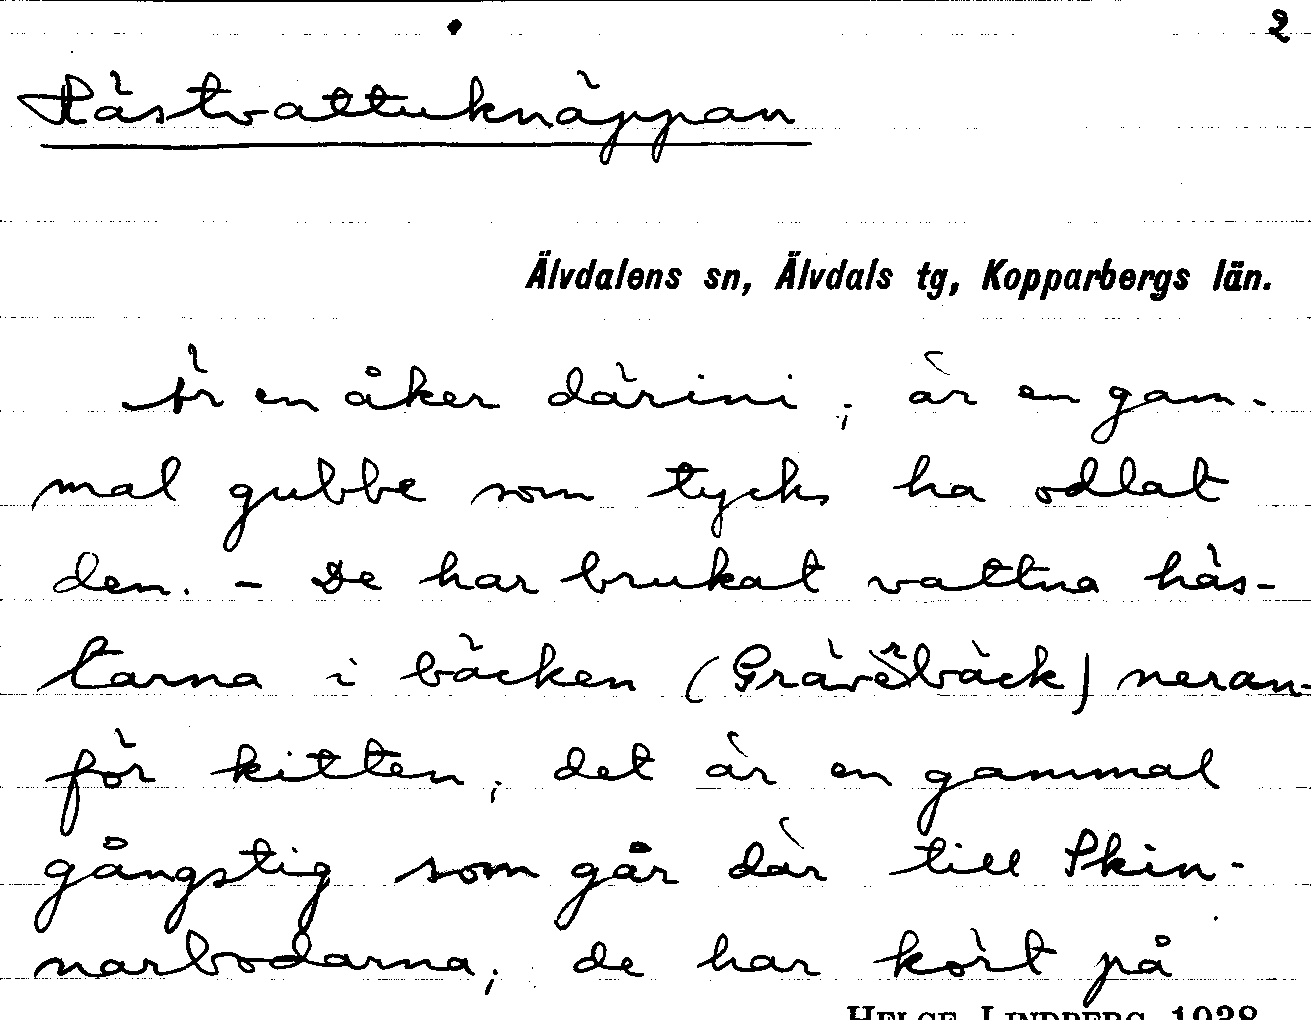 2
Hästvattuknäppan
Älvdalens sn, Älvdals tg, Kopparbergs län.
Är en åker därini; är en gam-
mal gubbe som tycks ha odlat
den. – De har brukat vattna häs-
tarna i bäcken (Grävebäck) neran-
för kitten; det är en gammal
gångstig som går där till Skin-
narbodarna; de har kört på
HELGE LINDBERG 1938